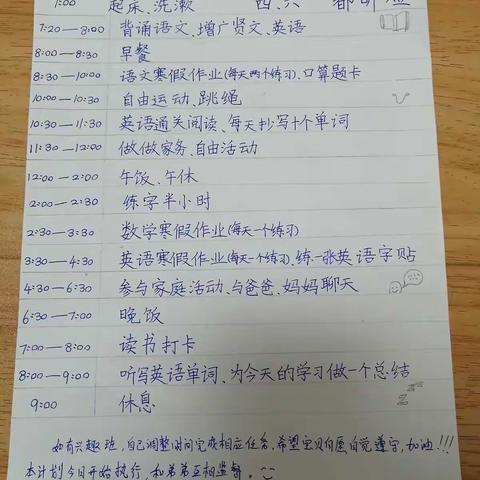 7:00 起床、洗漱
7:20—8:00 背诵语文、增广贤文、英语
8:00—8:30 早餐
8:30—10:00 语文寒假作业(每天两个练习)、口算题卡
10:00—10:30 自由运动、跳绳
10:30—11:30 英语通关阅读、每天抄写十个单词
11:30—12:00 做做家务、自由活动
12:00—2:00 午饭、午休
2:00—2:30 练字半小时
2:30—3:30 数学寒假作业(每天一个练习)
3:30—4:30 英语寒假作业(每天一个练习)、练一张英语字贴
4:30—6:30 参与家庭活动、与爸爸、妈妈聊天
6:30—7:00 晚饭
7:00—8:00 读书打卡
8:00—9:00 听写英语单词、为今天的学习做一个总结
9:00 休息
如有兴趣班,自己调整时间完成相应任务,希望宝贝自愿自觉遵守,加油!!!
本计划今日开始执行,和弟弟互相监督。